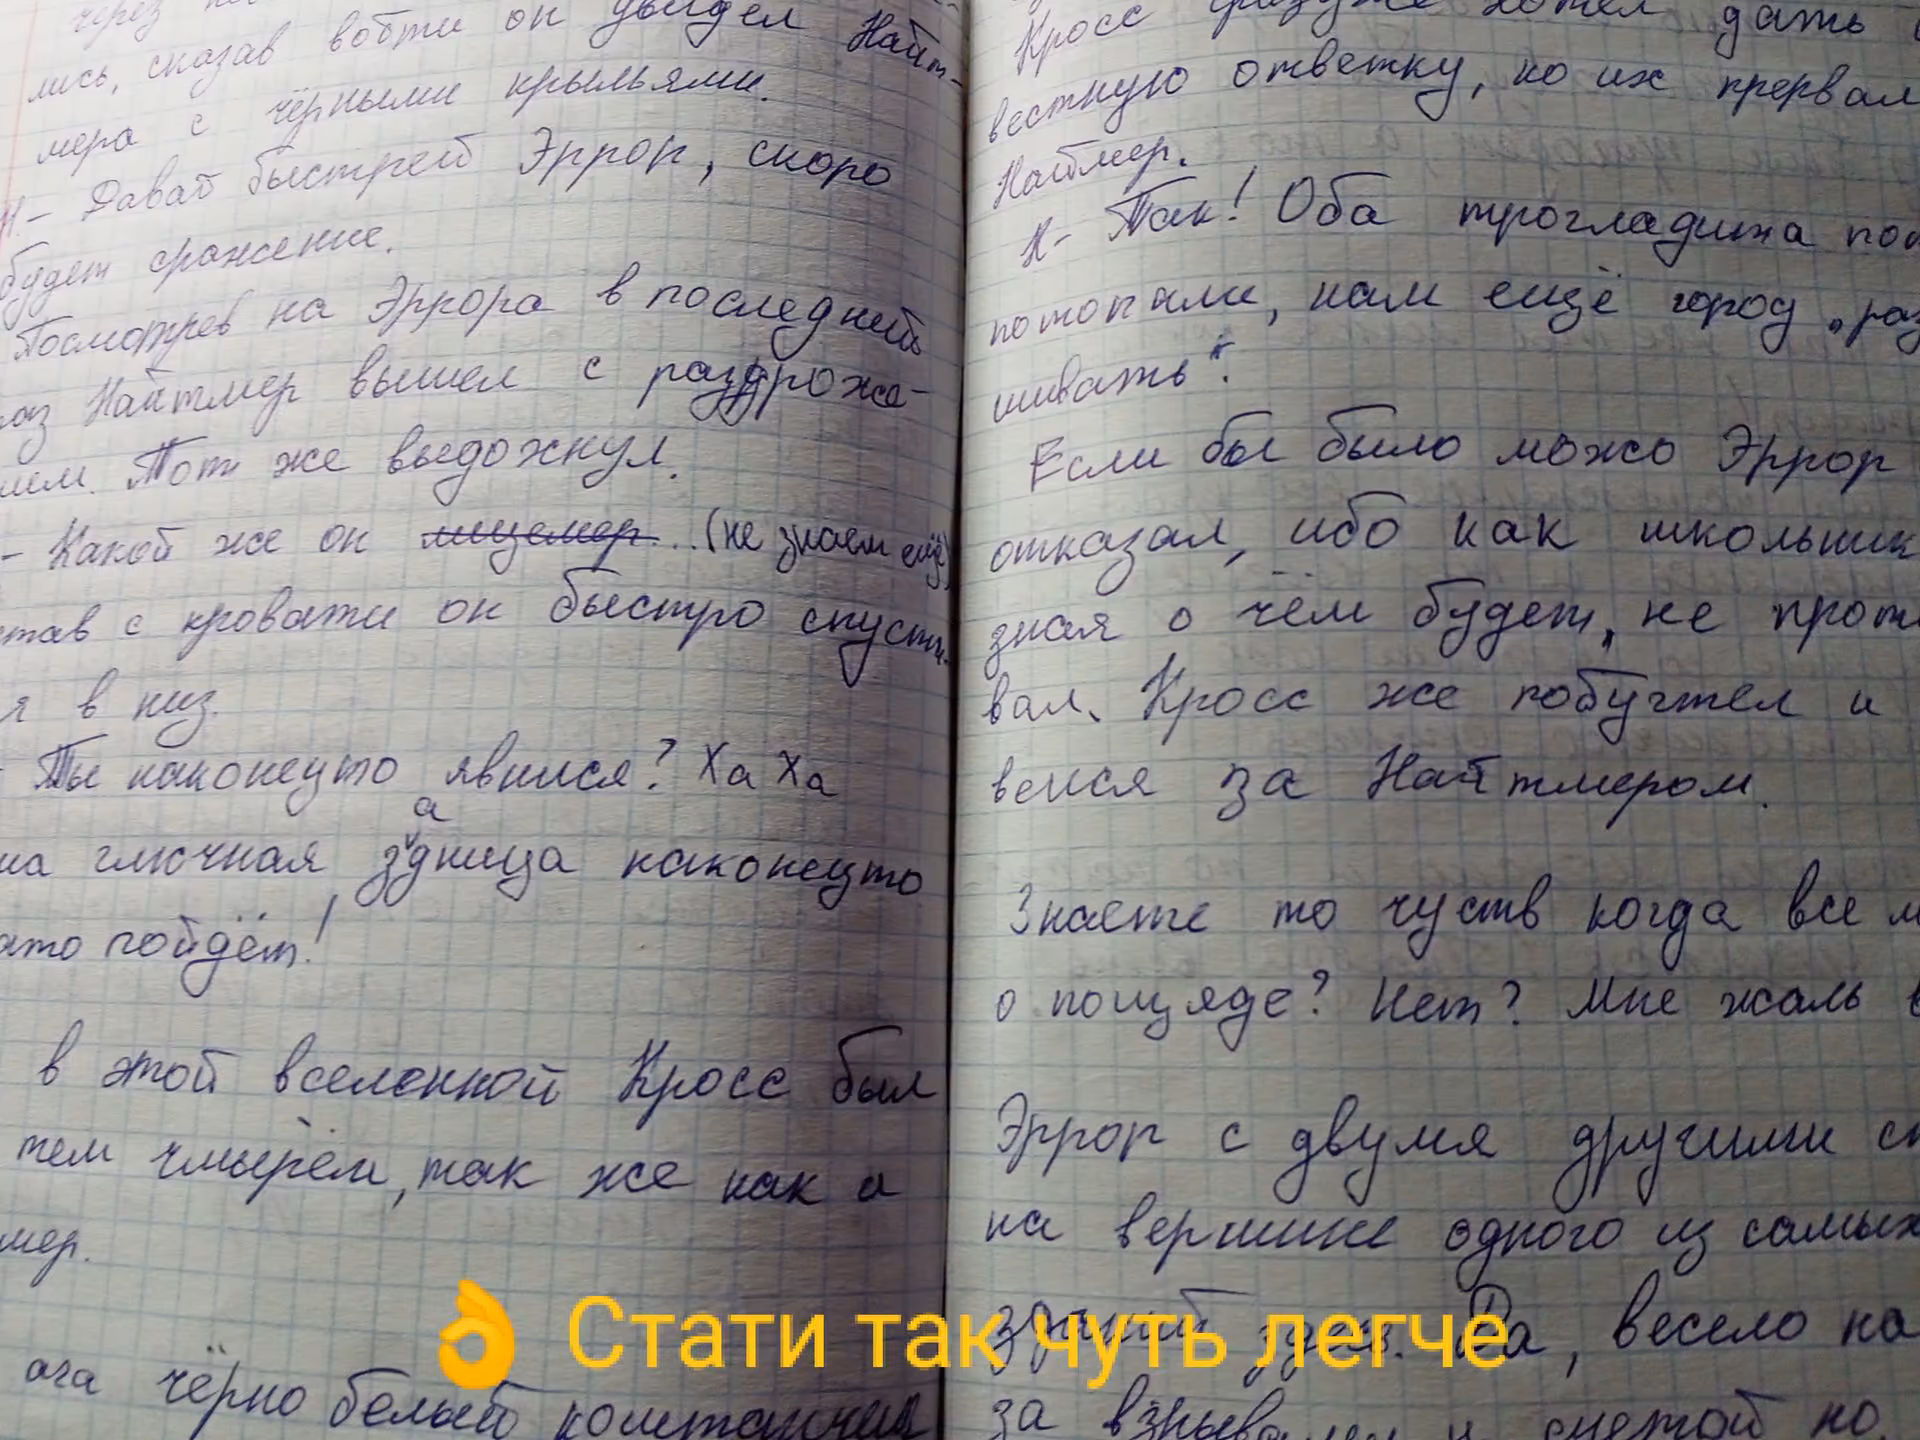 через
лись, сказав вобти он увидел Найт-
мера с чёрными крыльями.
Н.- Давай быстрей Эррор, скоро
будет сражение.
Посмотрев на Эррора в последний
раз Найтмер вышел с раздроже-
ием. Тот же выдохнул.
- Какой же он лицемер...(не знаем ещё)
став с кровати он быстро спусти-
я в низ.
- Ты наконецто явился? Ха Ха
на глючная, задница наконецто
ато пойдёт!
в этой вселенной Кросс был
тем чмырём, так же как и
мер.
ага чёрно белый
Кросс дать
вестную ответку, но их прервал
Найтмер.
Н- Так! Оба трогладита
потопали, нам ещё город „раз
шивать".
Если бы было можо Эррор
отказал, ибо как школьник
зная о чём будет, не проти
вал. Кросс же побугтел и
вемся за Найтмером.
Знаете то чуств когда все м
о пощяде? Нет? Мне жаль в
Эррор с двумя другими ст
на вершине одного из самых
зданий здесь. Да, весело на
за взрывами и суетой но
👌 Стати так чуть легче